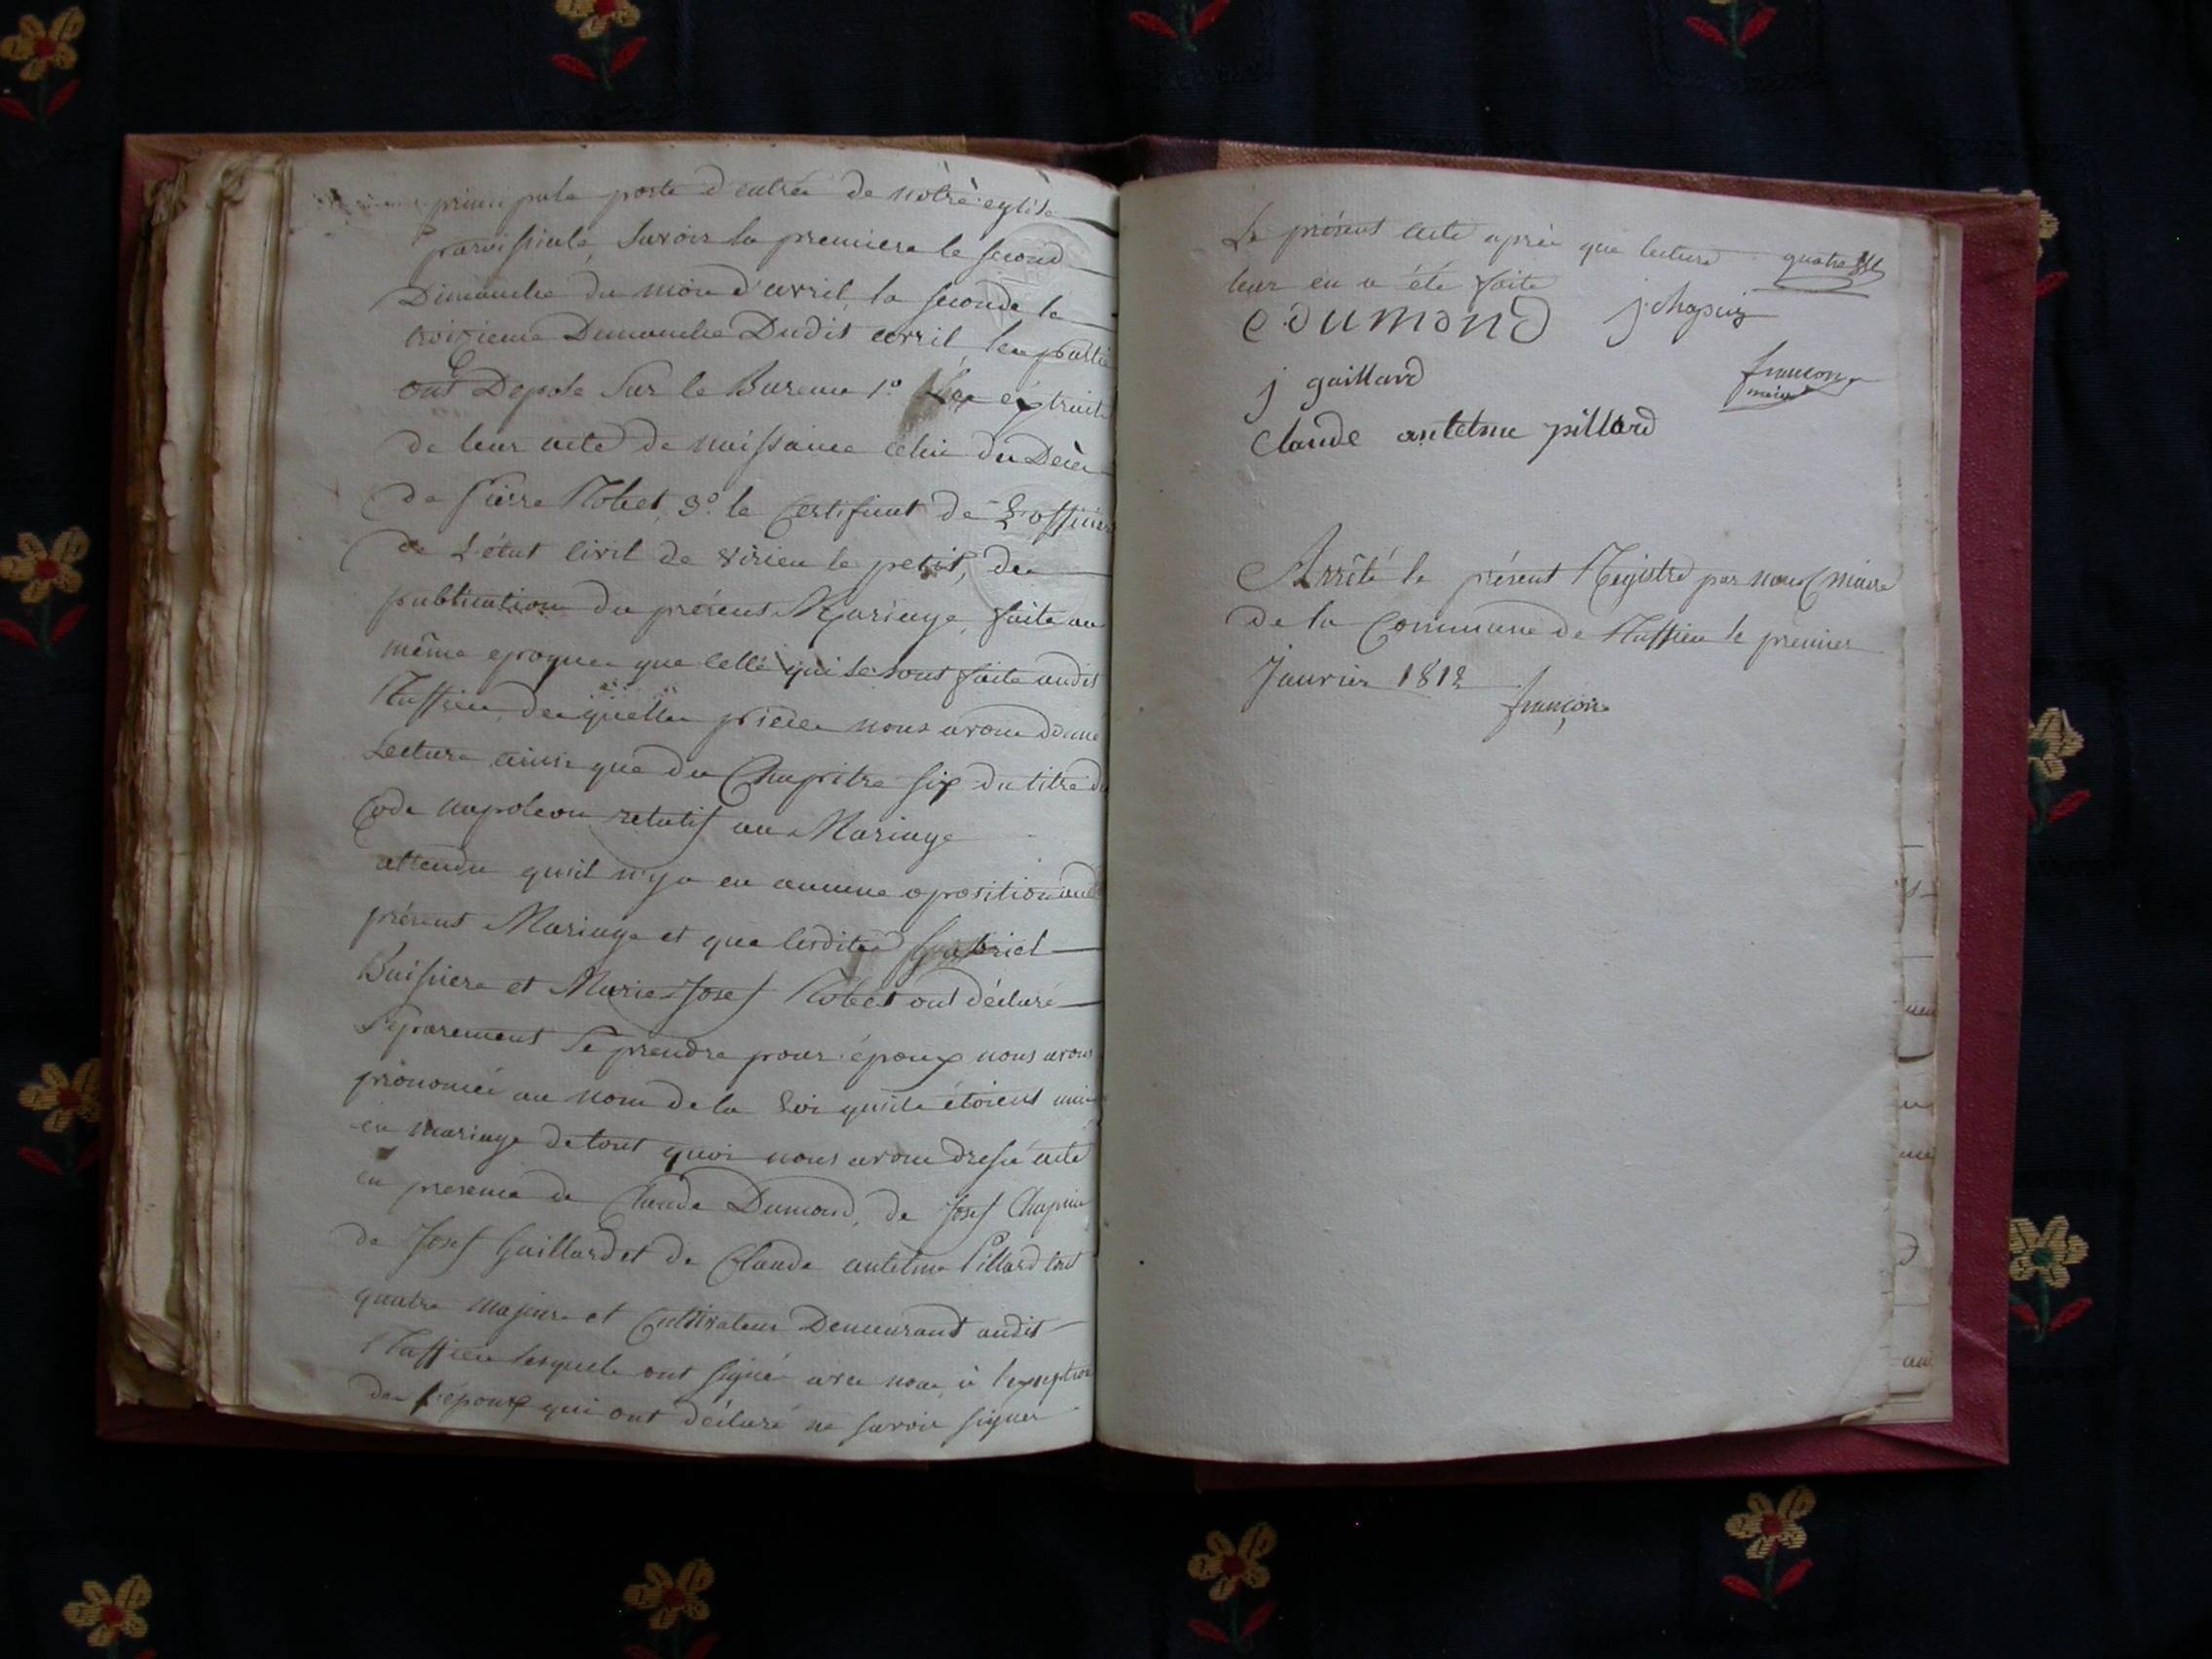 principale porte d'entrée de nôtre église
paroissiale, savoir la premiere le second
Dimanche du mois d'avril, la seconde le
troizieme Dimanche Dudit avril, les partie
ont Deposé sur le Bureau 1º Les extraits
de leur acte de naissance celui du Décès
de Pierre 3º. le Certificat de L'officier
de L'état Civil de virieu le petit, des
publication du présent Mariage, faite au
même epoques que celle qui se sont faite audit
desquelles pieces nous avons donné
Lecture ainsi que du Chapitre six du titre du
Code napoleon relatif au Mariage
attendu quil n'y a eu aucune oposition au
présent Mariage et que lesdites Gabriel
Buissiere et Marie Josef ont déclaré
séparement se prendre pour époux nous avons
prononcé au nom de la Loi quils étoient unis
en mariage de tout quoi nous avons dressé acte
en presence de Claude Dumond, de Josef Chapuis
de Josef Gaillard et de Claude antelme Pillard tout
quatre majeurs et Cultivateurs Demeurant audit
lesquels ont signé avec nous à l'exception
des époux qui ont déclaré ne savoir signer
Le présent acte après que lecture quatre
leur en a été faite
c dumond j chapuis
j gaillard françon maire
claude antelme pillard
Arrêté le présent Registre par nous maire
de la Commune de le premier
Janvier 1812
françon